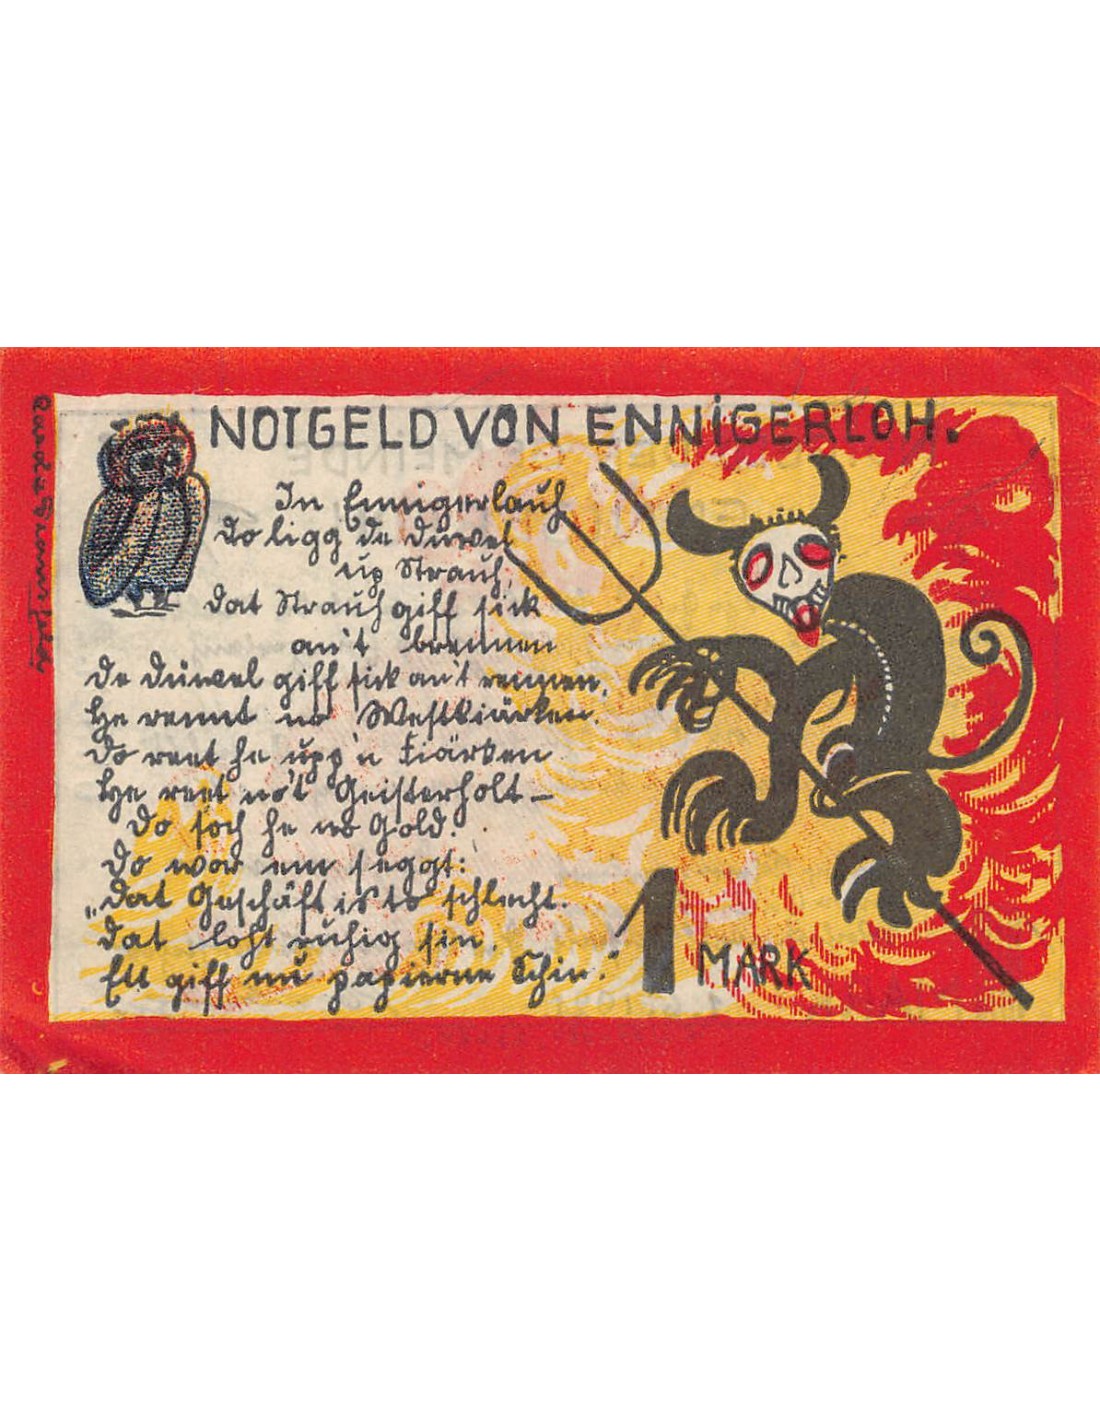 NOTGELD VON ENNIGERLOH.
In Ennigerlauh
do ligg de Düwel
up Strauh,
dat Strauh giff sick
an't brennen
de Düwel giff sick an't rennen,
He rennt no Westkiärken,
do reet he upp'n Fiärken
He reet no't Geisterholt —
do soch he no Gold.
do wor em seggt:
„dat Geschäft is to schlecht.
dat loht ruhig sin.
Ett giff nu papierne Schin."
1 MARK